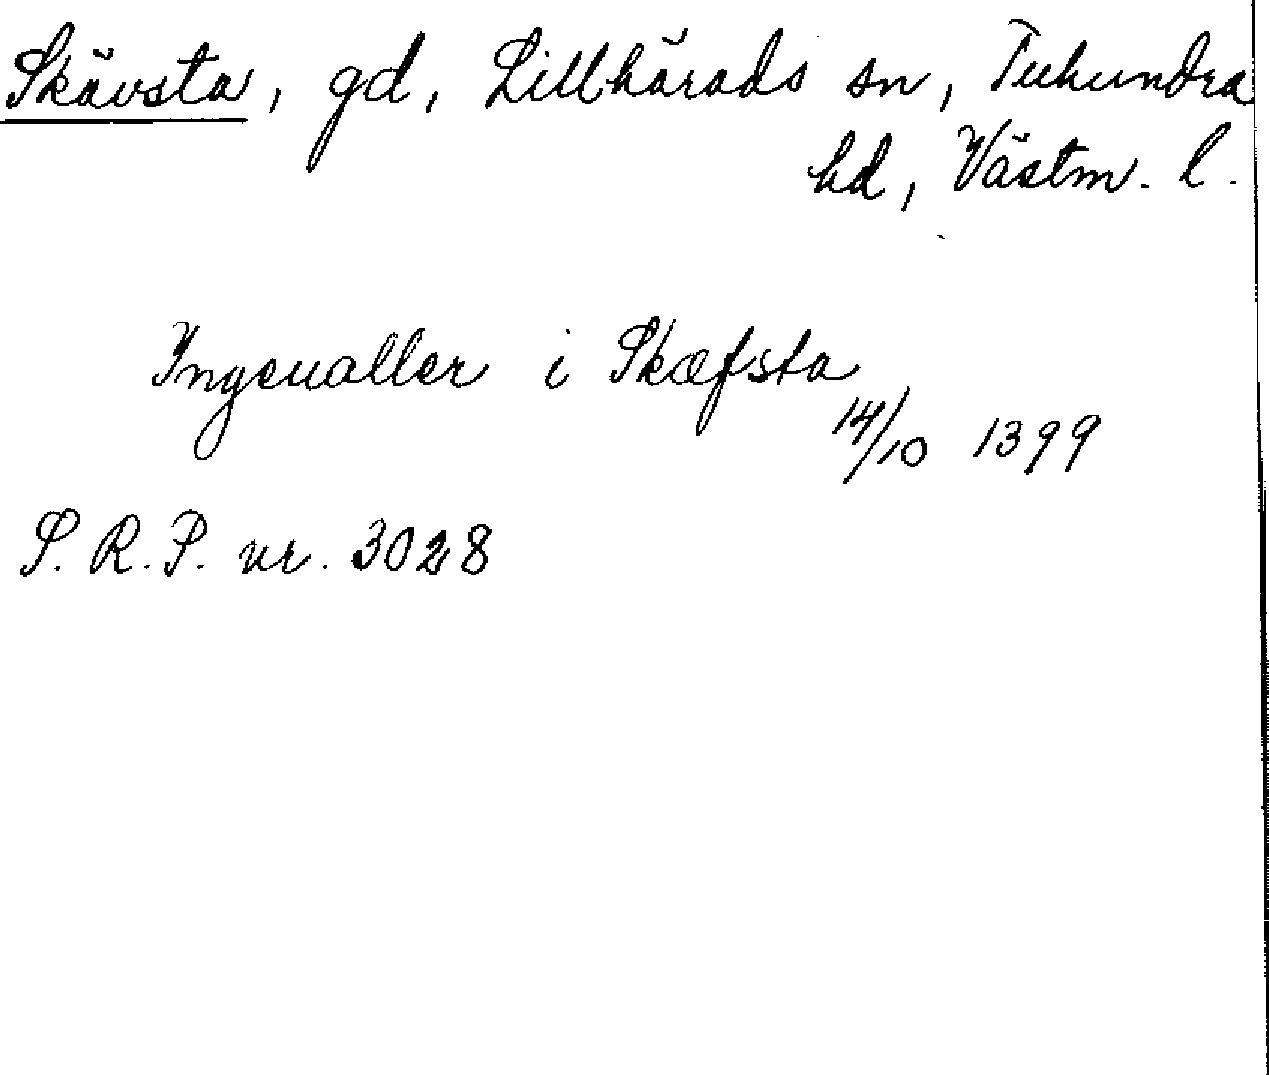 Skävsta, gd, Lillhärads sn, Tuhundra
hd, Västm. l.
Ingeualler i Skæfsta
14/10 1399
S. R. P. nr. 3028